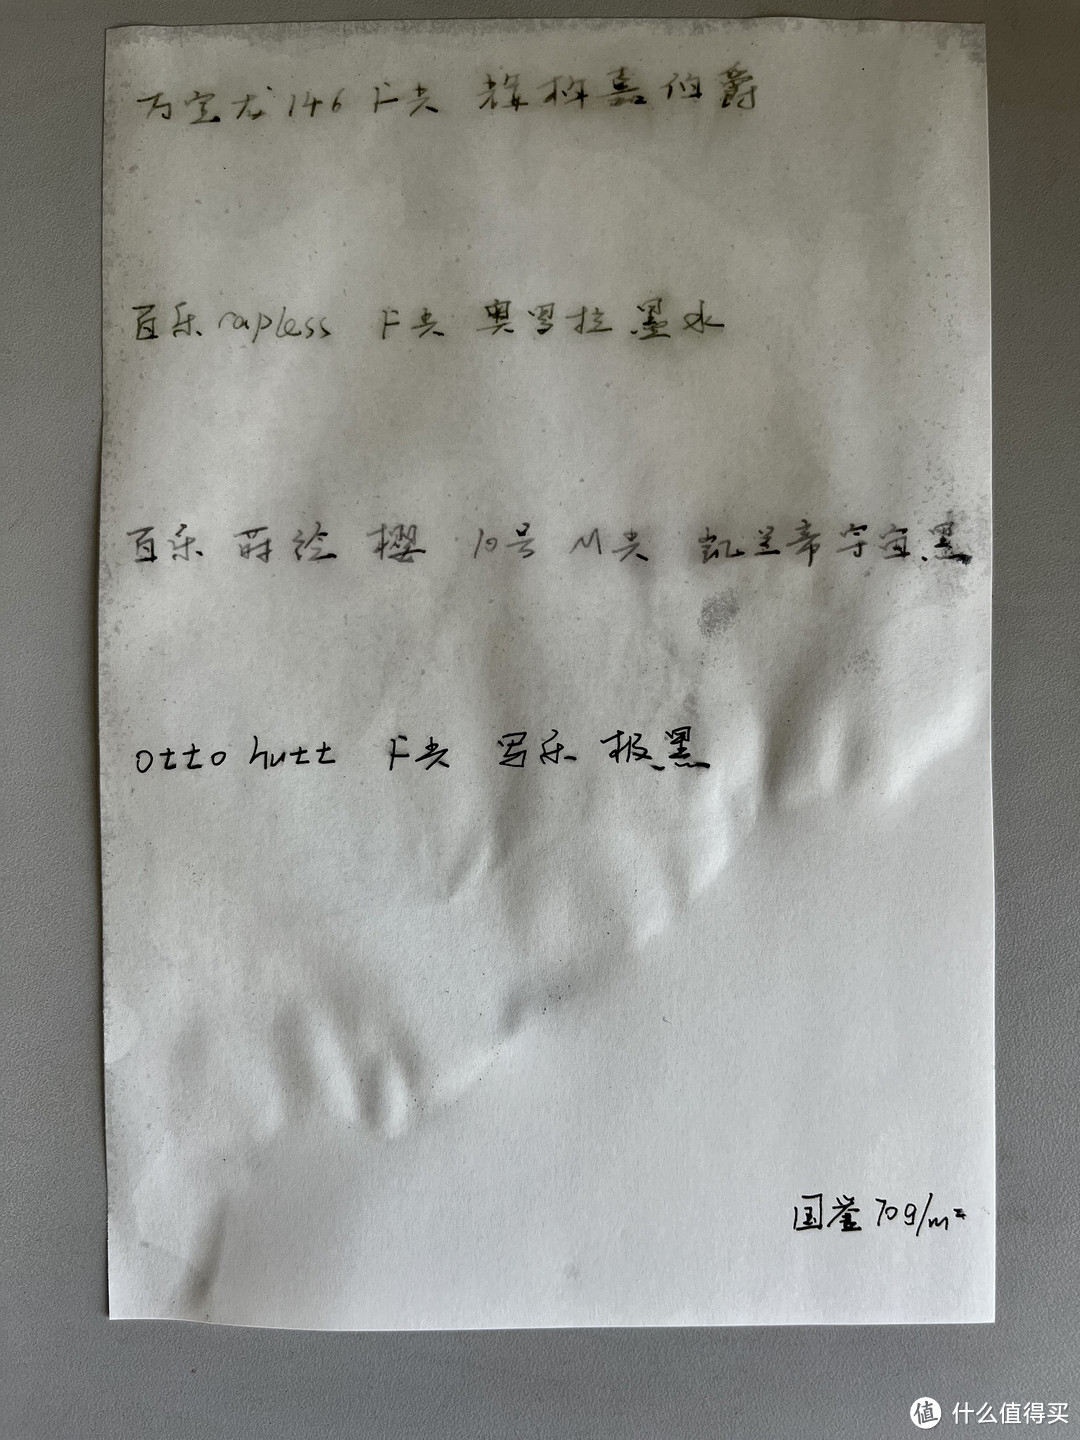 万宝龙 146 F尖 辉柏嘉伯爵
百乐 capless F尖 奥罗拉墨水
百乐 莳绘 樱 10号 M尖 凯兰帝宇宙黑
otto hutt F尖 写乐 极黑
国誉 70g/m²
值 什么值得买